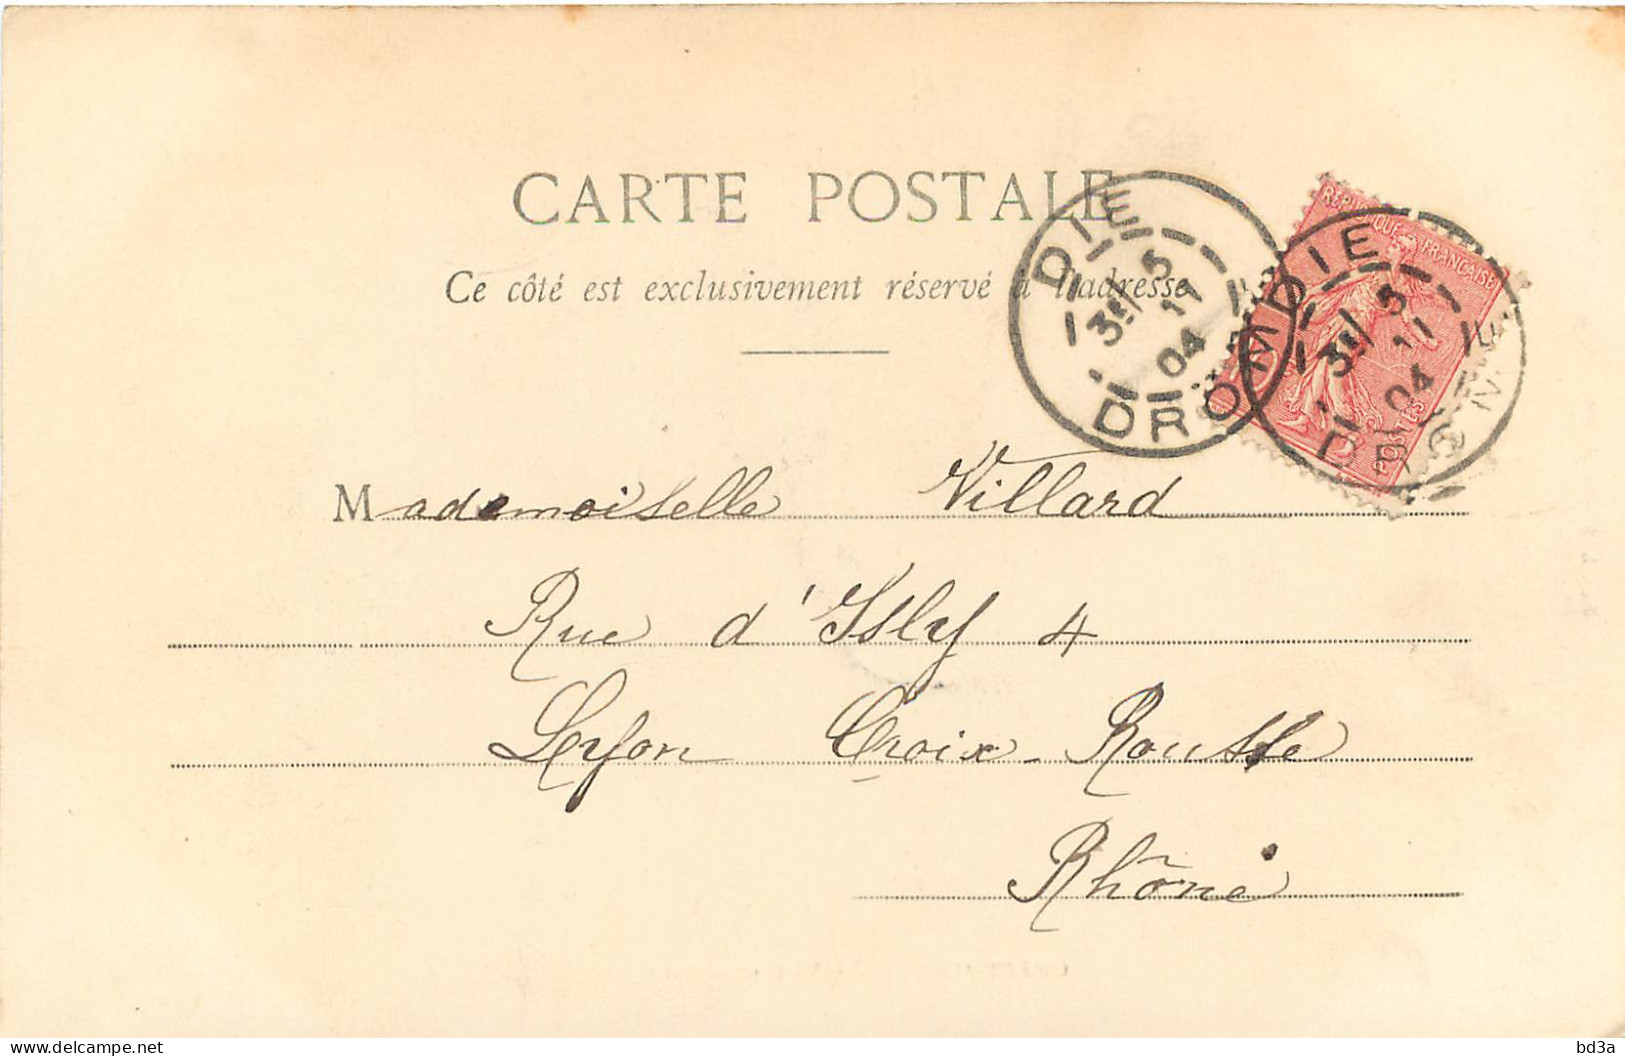 CARTE POSTALE
Ce côté est exclusivement réservé à l'adresse
DIE
3E/ 5
11
04
DRÔME
RÉPUBLIQUE FRANÇAISE
POSTES
DIE
3E/ 5
11
04
DRÔME
Mademoiselle Villard
Rue d'Isly 4
Lyon Croix-Rousse
Rhône
www.delcampe.net
bd3a